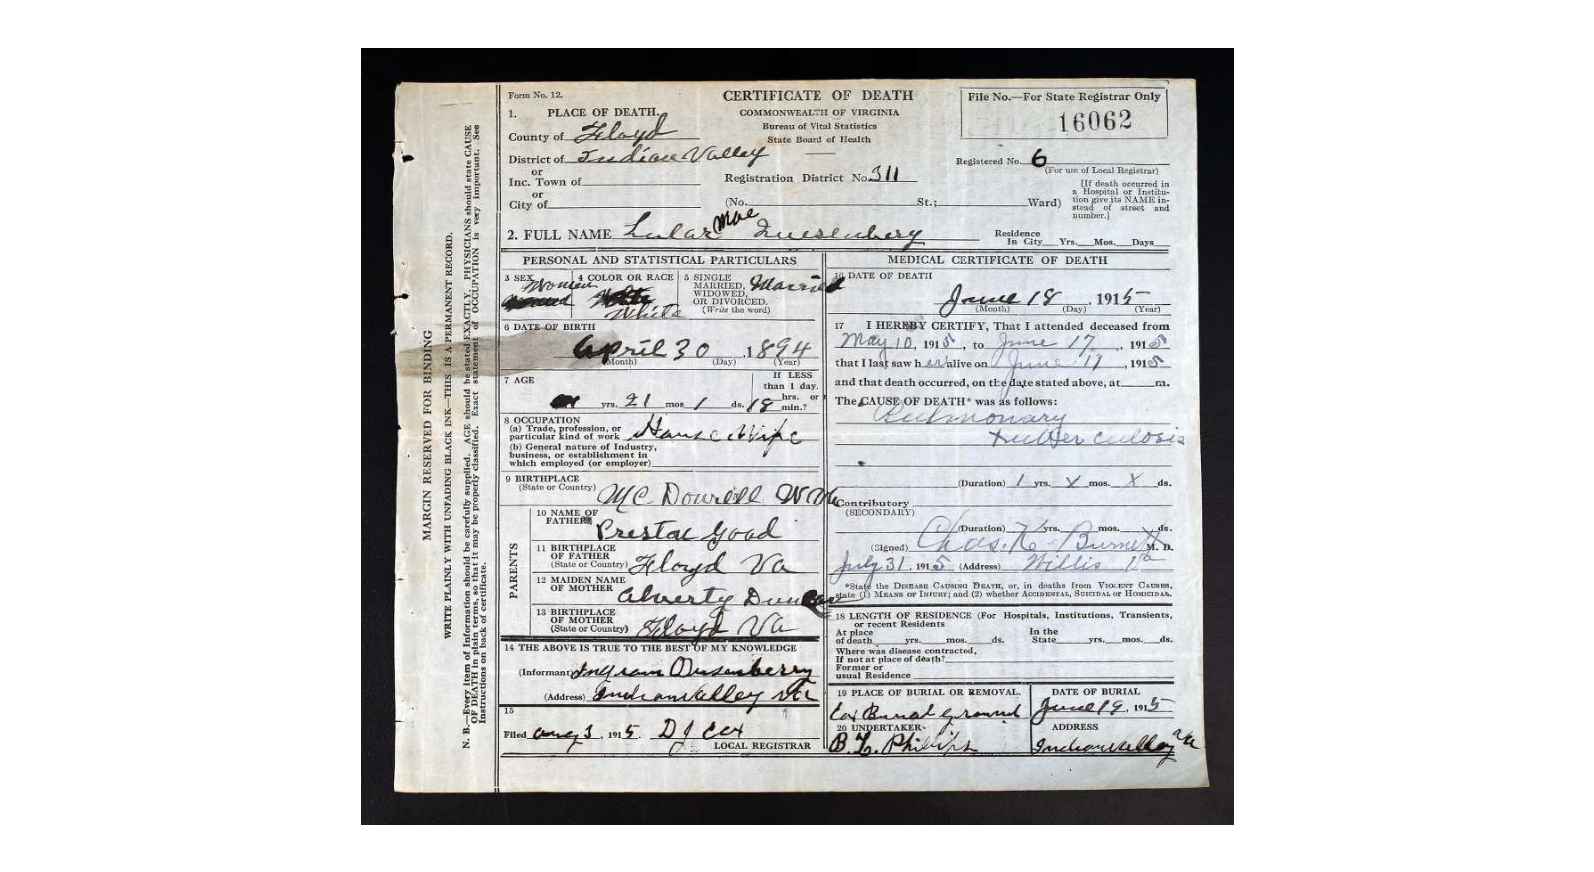 Form No. 12.
CERTIFICATE OF DEATH
COMMONWEALTH OF VIRGINIA
Bureau of Vital Statistics
State Board of Health
File No.—For State Registrar Only
16062
1. PLACE OF DEATH.
County of Floyd
District of Indian Valley
or
Inc. Town of
or
City of
Registration District No. 311
Registered No. 6
(For use of Local Registrar)
(No. St.; Ward)
[If death occurred in
a Hospital or Institu-
tion give its NAME in-
stead of street and
number.]
2. FULL NAME Lular Mae Quesenbery
Residence
In City Yrs. Mos. Days
PERSONAL AND STATISTICAL PARTICULARS
3 SEX Women
4 COLOR OR RACE White
5 SINGLE
MARRIED,
WIDOWED,
OR DIVORCED.
(Write the word)
Married
6 DATE OF BIRTH
April 30, 1894
(Month) (Day) (Year)
7 AGE
If LESS
than 1 day,
hrs. or
min.?
yrs. 21 mos 1 ds. 18
8 OCCUPATION
(a) Trade, profession, or
particular kind of work House Wife
(b) General nature of Industry,
business, or establishment in
which employed (or employer)
9 BIRTHPLACE
(State or Country) Mc Dowell W Va
PARENTS
10 NAME OF
FATHER
Good
11 BIRTHPLACE
OF FATHER
(State or Country) Floyd Va
12 MAIDEN NAME
OF MOTHER Duncan
13 BIRTHPLACE
OF MOTHER
(State or Country) Floyd Va
14 THE ABOVE IS TRUE TO THE BEST OF MY KNOWLEDGE
(Informant) Ingram Qusenberry
(Address) Indian Valley Va
15
Filed Aug 3, 1915 D J Cox
LOCAL REGISTRAR
MEDICAL CERTIFICATE OF DEATH
16 DATE OF DEATH
June 18, 1915
(Month) (Day) (Year)
17 I HEREBY CERTIFY, That I attended deceased from
May 10, 1915, to June 17, 1915
that I last saw her alive on June 17, 1915
and that death occurred, on the date stated above, at m.
The CAUSE OF DEATH* was as follows:
Pulmonary
tuberculosis
(Duration) 1 yrs. x mos. x ds.
Contributory
(SECONDARY)
(Duration) yrs. mos. ds.
(Signed) Chas. K Burnett M. D.
July 31, 1915 (Address) Willis Va
*State the DISEASE CAUSING DEATH, or, in deaths from VIOLENT CAUSES,
state (1) MEANS OF INJURY; and (2) whether ACCIDENTAL, SUICIDAL or HOMICIDAL.
18 LENGTH OF RESIDENCE (For Hospitals, Institutions, Transients,
or recent Residents
At place
of death yrs. mos. ds.
In the
State yrs. mos. ds.
Where was disease contracted,
If not at place of death?
Former or
usual Residence
19 PLACE OF BURIAL OR REMOVAL.
Cox Burial Ground
DATE OF BURIAL
June 19, 1915
20 UNDERTAKER
B. L. Phillips
ADDRESS
Indian Valley Va
MARGIN RESERVED FOR BINDING
WRITE PLAINLY WITH UNFADING BLACK INK—THIS IS A PERMANENT RECORD.
N. B.—Every item of Information should be carefully supplied. AGE should be stated EXACTLY. PHYSICIANS should state CAUSE
OF DEATH in plain terms, so that it may be properly classified. Exact statement of OCCUPATION is very important. See
Instructions on back of certificate.